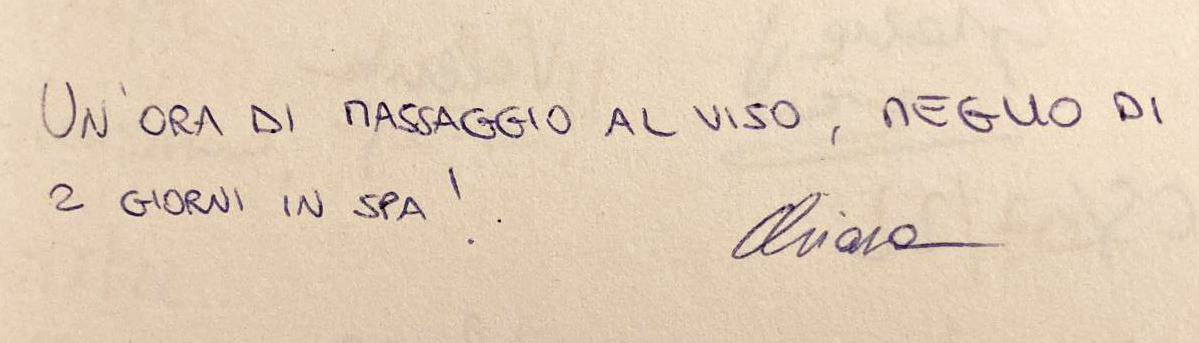 UN'ORA DI MASSAGGIO AL VISO, MEGLIO DI
2 GIORNI IN SPA!
Chiara